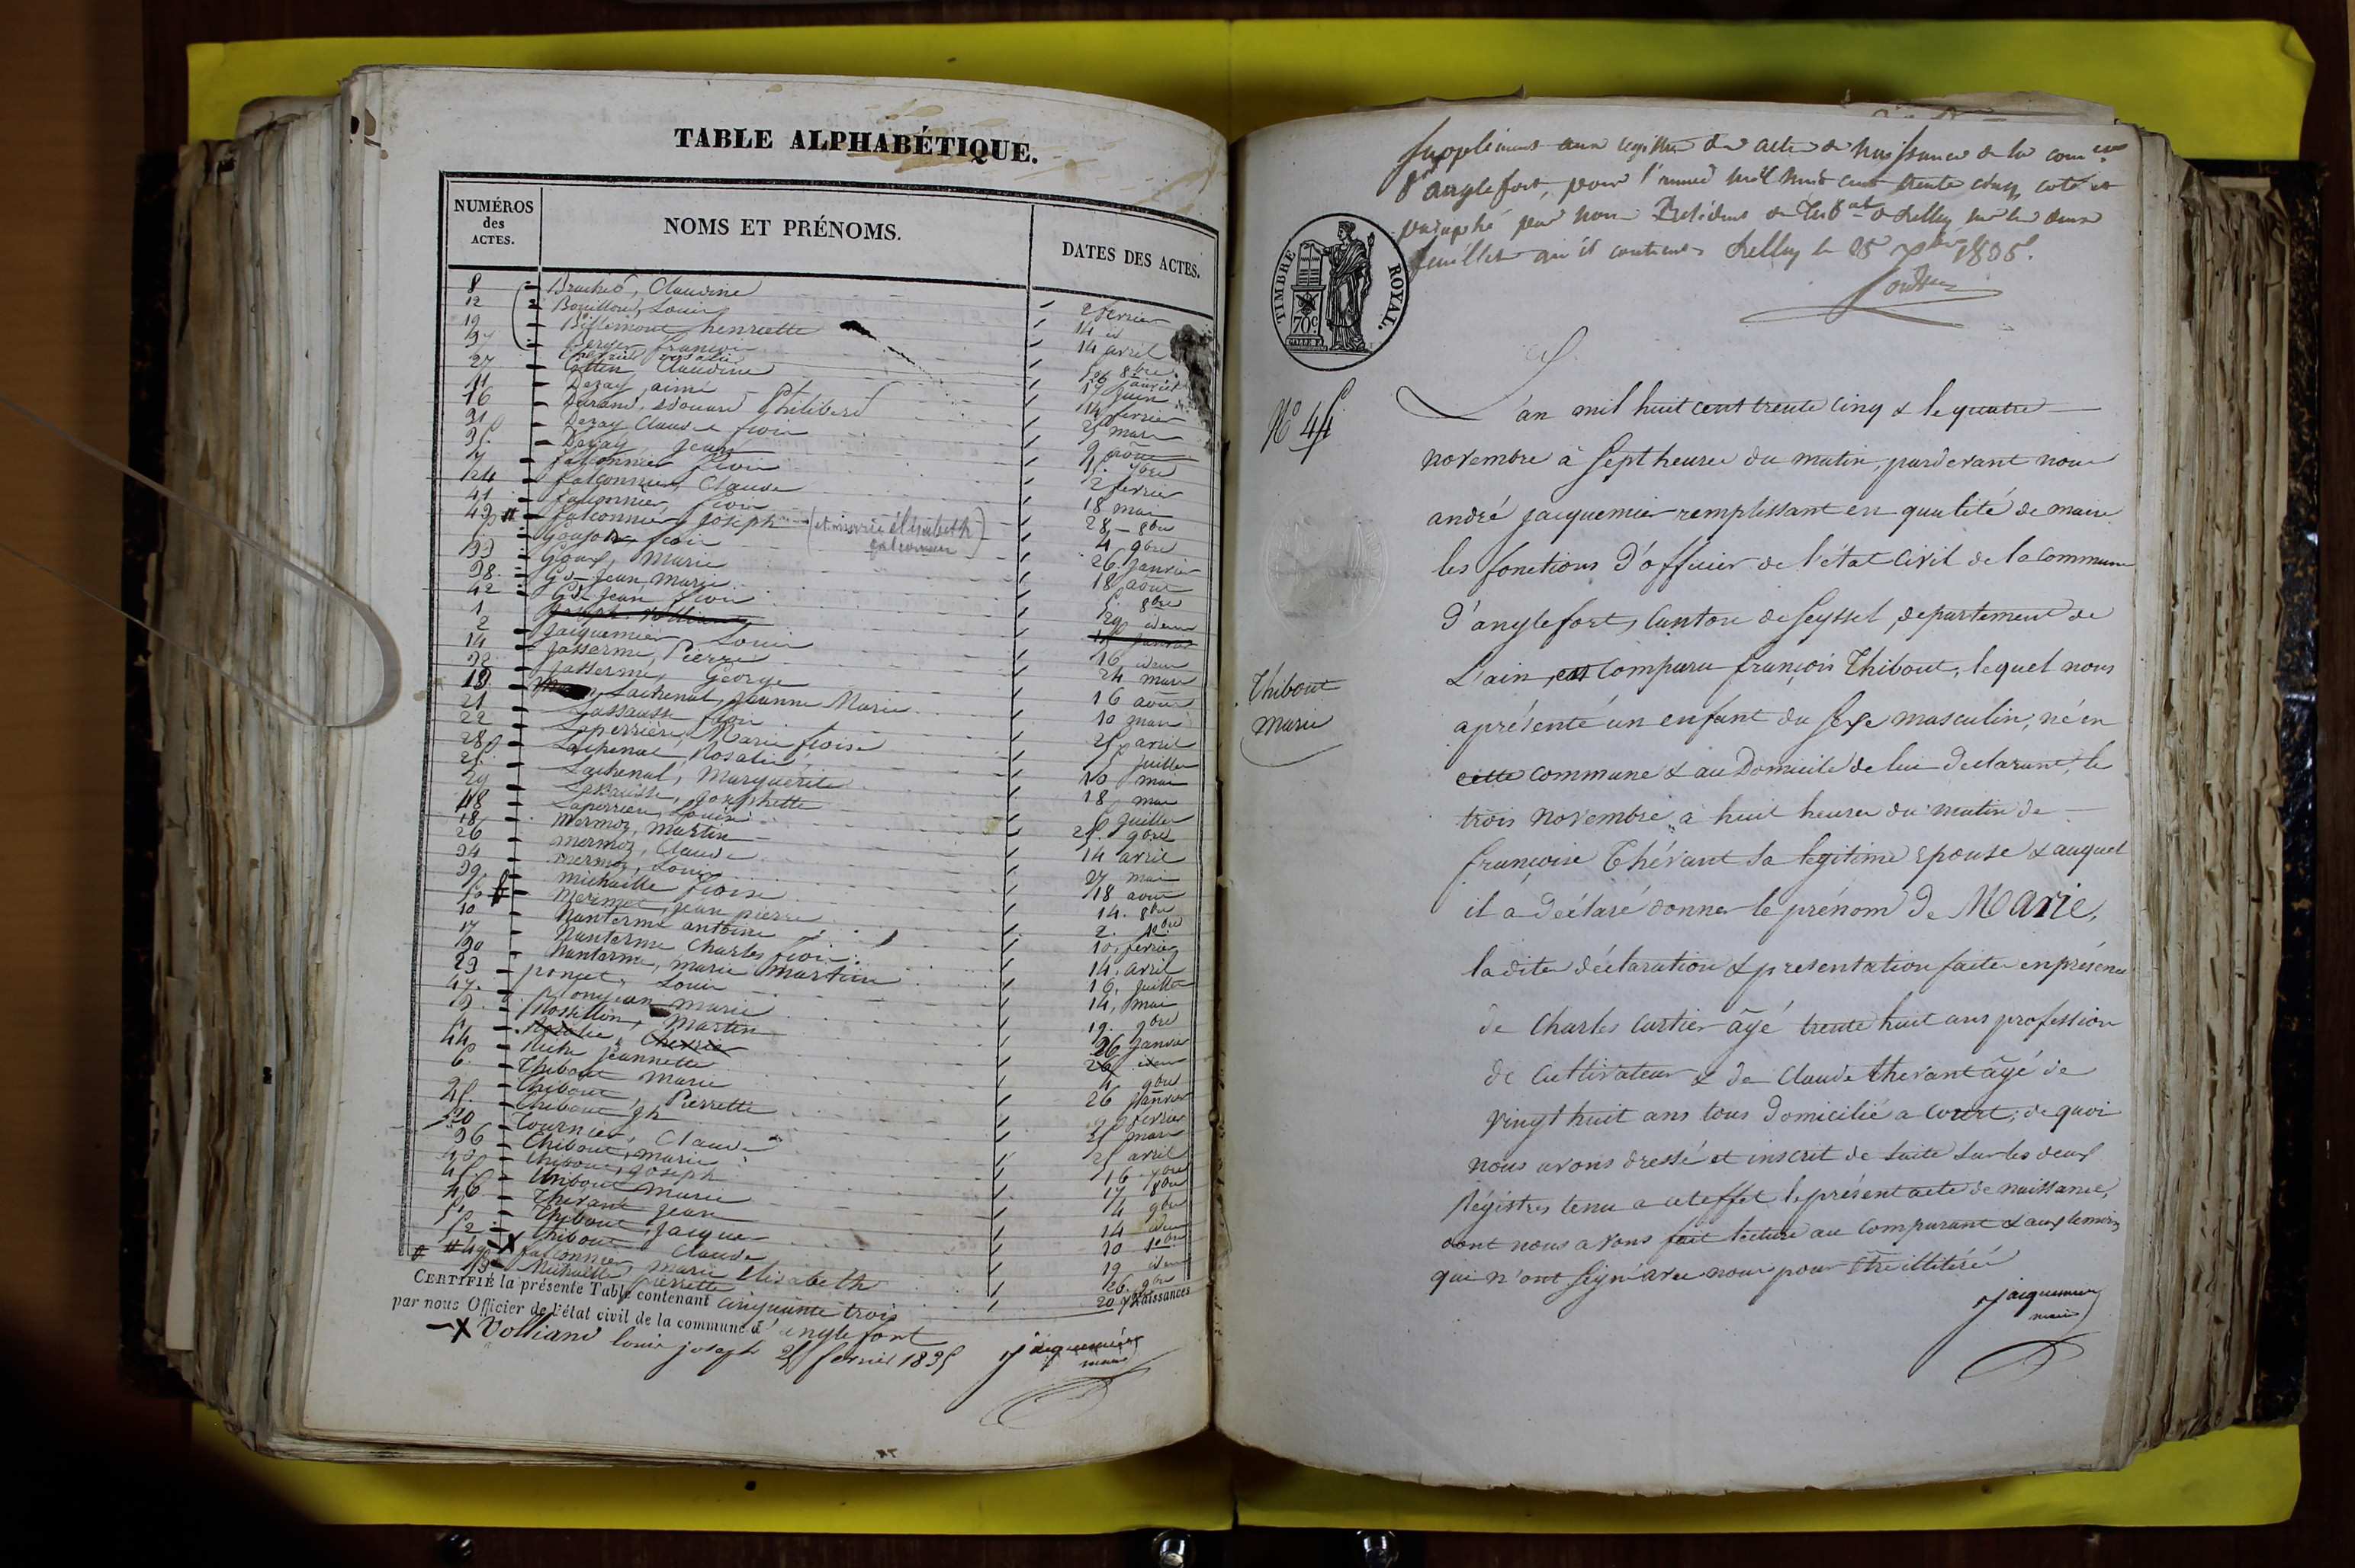 TABLE ALPHABÉTIQUE.
NUMÉROS des ACTES.
NOMS ET PRÉNOMS.
DATES DES ACTES.
8 Claudine 2 fevrier
12 Bouilloud, Louis 14 id
19 henriette 14 avril
Berger, françois
Claudine
27 Dezay, aimé juin
11 Durand, Edouard Philibert 14 fevrier
16 Dezay Claude fcois 25 mars
31 Dezay Jean 9 aout
falconnier fcois
7 falconnier, Claude 2 fevrier
24 falconnier, fcois 18 mai
41 falconnier, Joseph (et marie élisabeth falconnier) 28 8bre
43 Goujon, fcois 4 9bre
Goux, Marie 26 Janvier
33 Gd Jean Marie 18 aout
38 Gd Jean fcois 8bre
42 29 idem
1 Jacquemier, Louis
2 Jasserme, Pierre 16 idem
14 Jasserme, George 24 mars
32 Lachenal, Jeanne Marie 16 aout
13 Lassausse fcois 10 mars
21 Laperrière, Marie fcoise 25 avril
22 Lachenal, Rosalie juillet
28 Lachenal, Marguerite 10 mai
25 18 mai
29 Laperrière, Louise 6 juillet
48 mermoz, martin 25 9bre
18 mermoz, Claude 14 avril
26 mermoz, Louis 27 mai
34 michaille fcoise 18 aout
39 Mermet, jean pierre 14 8bre
50 Nanterme antoine 2 10bre
10 Nanterme Charles fcois 10 fevrier
17 Nanterme, marie martine 14 avril
30 poncet, Louis 16 juillet
23 marie 14 mai
47 Rossillon, Martin 19 9bre
3 26 janvier
4 Jeannette 26 idem
44 Thibout Marie 4 9bre
6 Thibout, Pierrette 26 janvier
9 Thibout jh fevrier
15 Tournier, Claude 25 mars
20 Thibout, marie 25 avril
36 thibout, joseph 16 7bre
40 thibout marie 17 8bre
45 Thevant jean 4 9bre
46 Thibout, Jacques 14 idem
51 thibout Claude 10 10bre
52 falconnier, marie Elisabeth 19 idem
49 Michaille pierrette 26 9bre
CERTIFIÉ la présente Table contenant cinquante trois naissances
par nous Officier de l'état civil de la commune d'anglefort
X Volliand louis joseph 25 fevrier 1835
jacquemier
maire
Supplément aux registres des actes de naissance de la comune
d'anglefort, pour l'année mil huit cent trente cinq, coté et
paraphé par nous Président du Tribal de Belley sur les deux
feuillets qu'il contient Belley le 28 1835.
TIMBRE ROYAL.
70c.
N° 45
Thibout
Marie
L'an mil huit cent trente cinq & le quatre
novembre à sept heures du matin, pardevant nous
andré jacquemier remplissant en qualité de maire
les fonctions d'officier de l'état Civil de la commune
d'anglefort, Canton de Seyssel, département de
L'ain, est Comparu françois Thibout, lequel nous
a présenté un enfant du sexe masculin, né en
cette commune & au Domicile de lui Declarant, le
trois Novembre à huit heures du matin de
françoise Thévant sa legitime Epouse & auquel
il a déclaré donner le prénom de Marie,
la dite déclaration & presentation faite en présence
de Charles Cartier âgé trente huit ans profession
de Cultivateur & de Claude thevant âgé de
vingt huit ans tous Domicilié a Court, de quoi
nous avons dressé et inscrit de suite sur les deux
Régistres tenu a cet effet le présent acte de naissance,
dont nous avons fait lecture au Comparant & aux temoins
qui n'ont signé avec nous pour être illitéré
jacquemier
maire